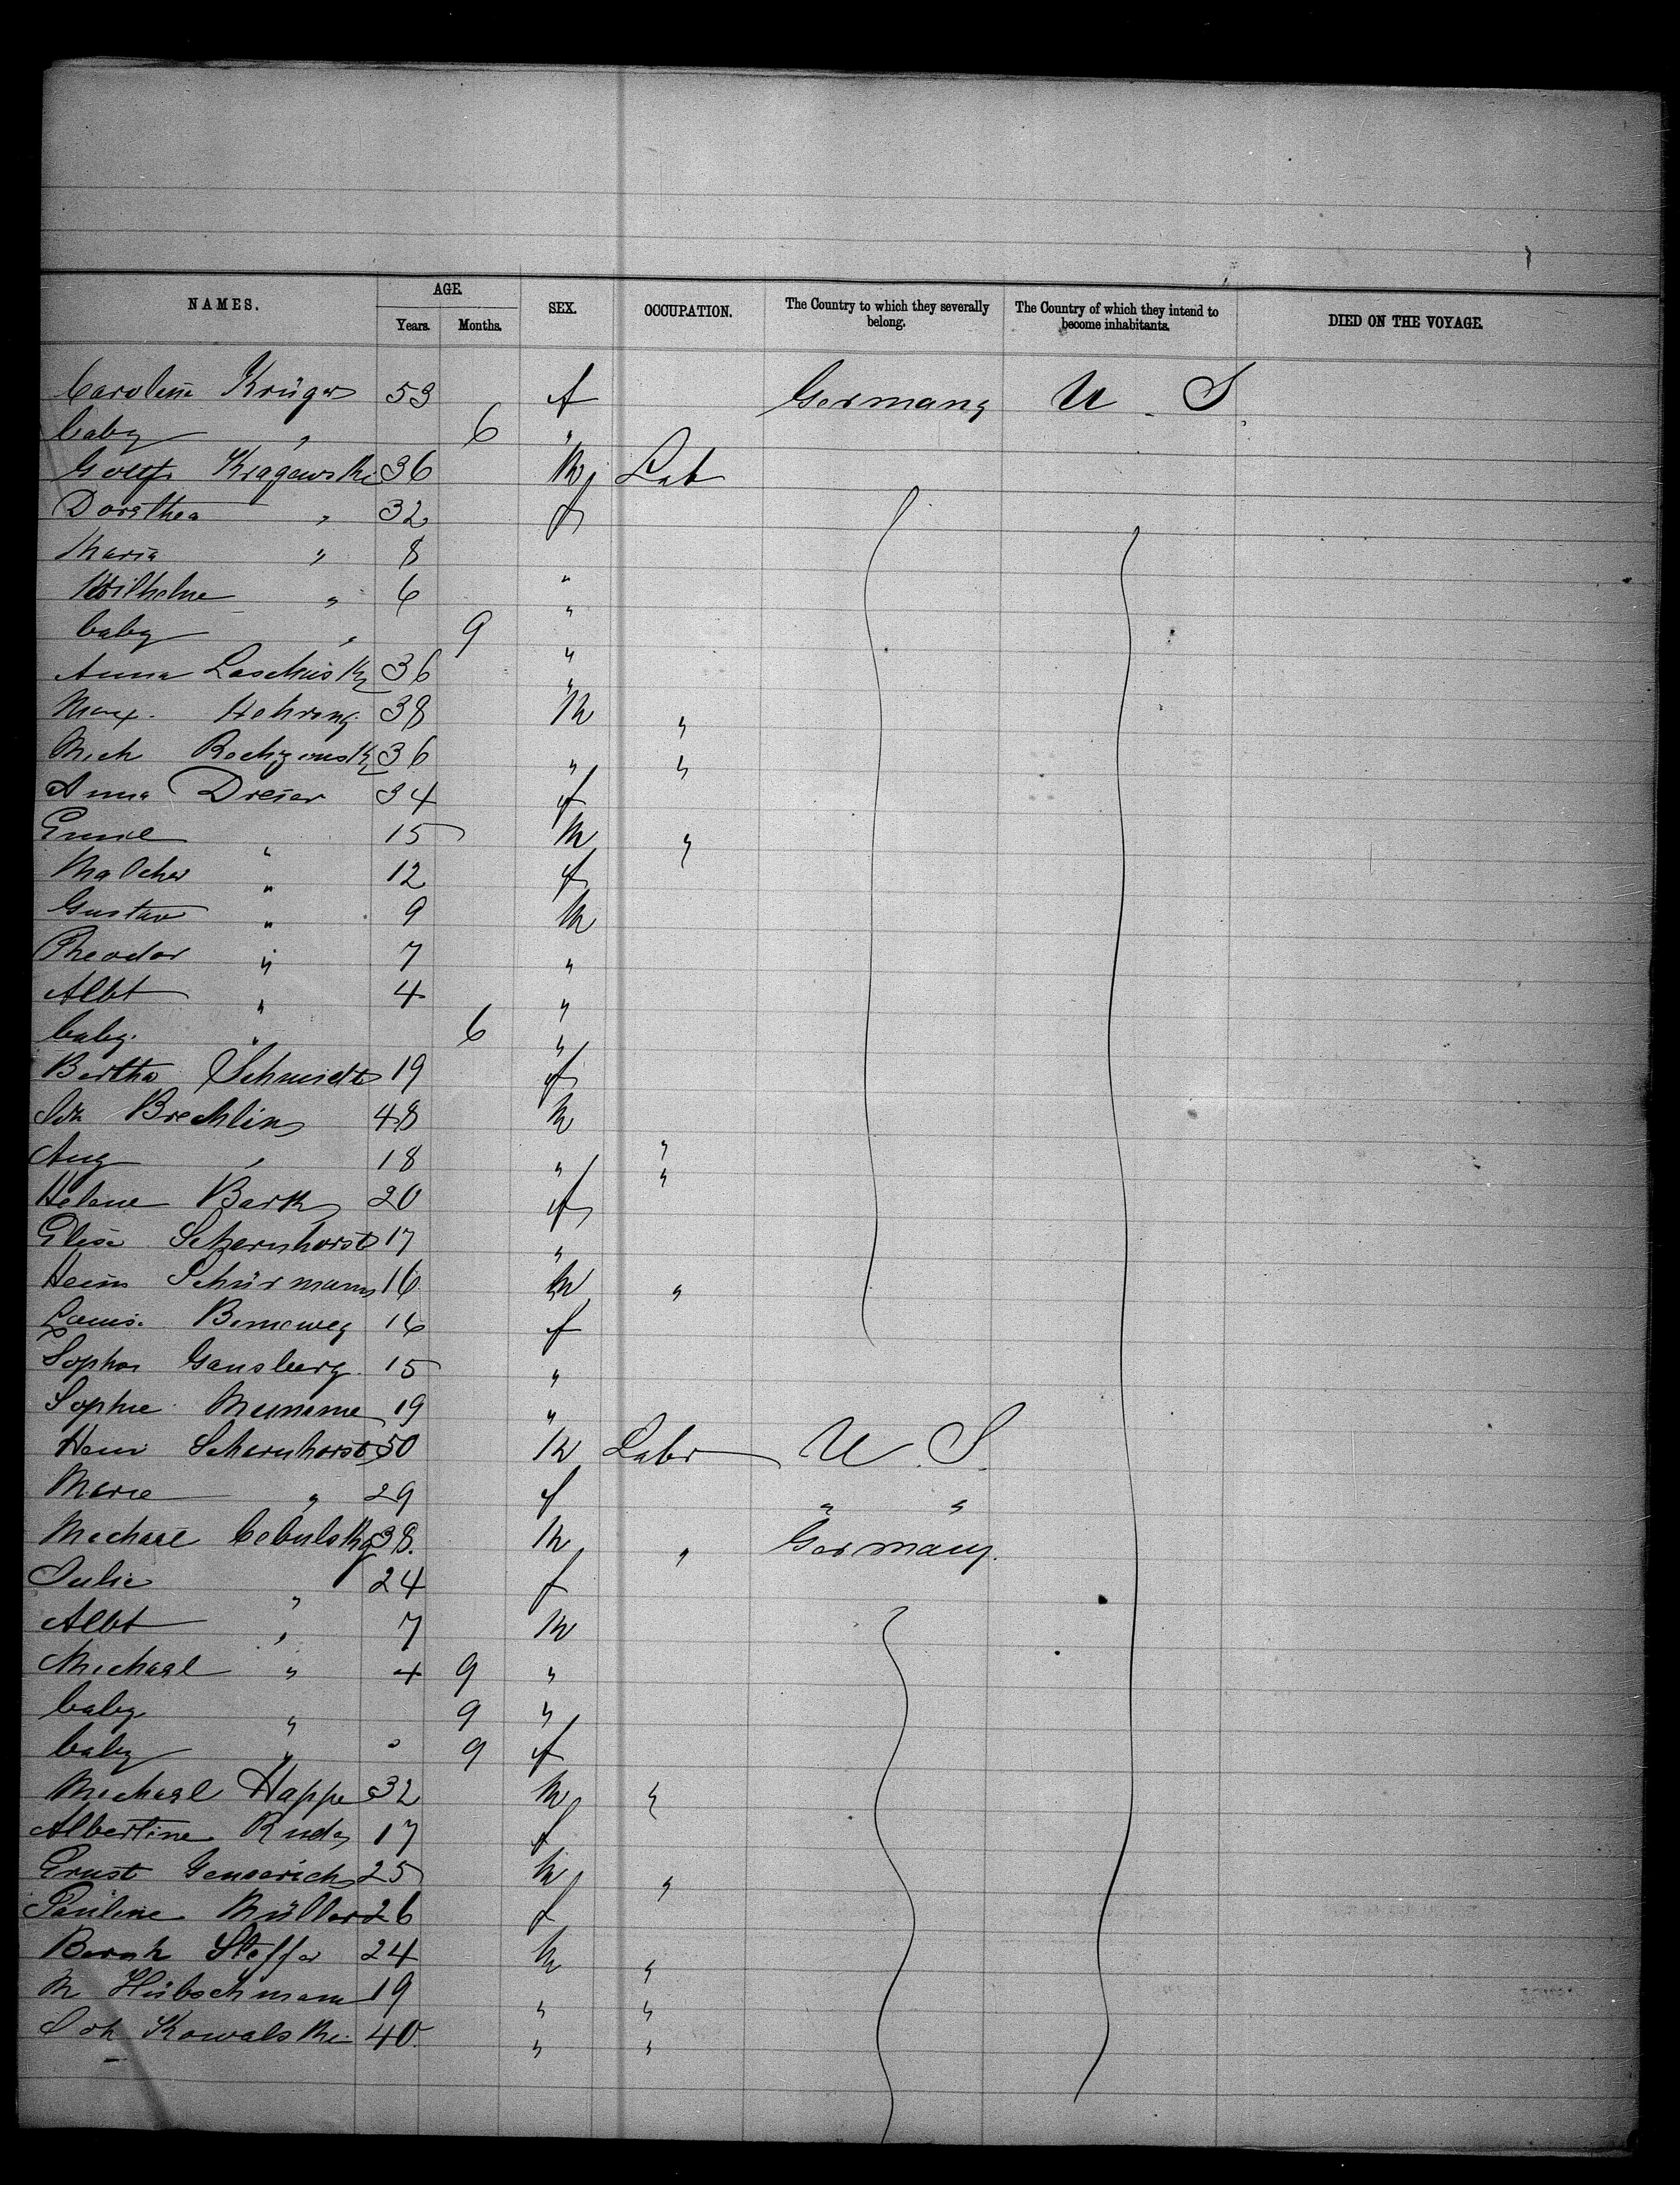 NAMES. AGE. SEX. OCCUPATION. The Country to which they severally belong. The Country of which they intend to become inhabitants. DIED ON THE VOYAGE.
Years. Months.
Caroline Krüger 53 f Germany U. S.
baby " 6 "
Gottfr Kragawski 36 M Lab
Dorothea " 32 f
Maria " 8 "
Wilhelme " 6 "
baby " 9 "
Anna Laschusky 36 "
Max. Hehrong 38 M "
Mich 36 " "
Anna Dreier 34 f
Emil " 15 M "
" 12 f
Gustav " 9 M
Theodor " 7 "
Albt " 4 "
baby. " 6 "
Bertha Schmidt 19 f
Joh Brechlin 48 M "
Aug " 18 " "
Helene Bark 20 f
Elise Scharnhorst 17 "
Hein Schürmann 16 M "
Louis. 16 f
Sophie Gansberg. 15 "
Sophie Mumme 19 "
Hein Scharnhorst 50 M Labr U. S.
Marie " 29 f " "
Michael Cebulsky 38. M " Germany.
Julie " 24 f
Albt " 7 M
Michael " 4 9 "
baby " 9 "
baby " 9 f
Michael Happe 32 M "
Albertine Ruda 17 f
Ernst Genserich 25 M "
Pauline Müller 26 f
Bernh Steffer 24 M "
M Hübschmann 19 " "
Joh Kowalski. 40. " "